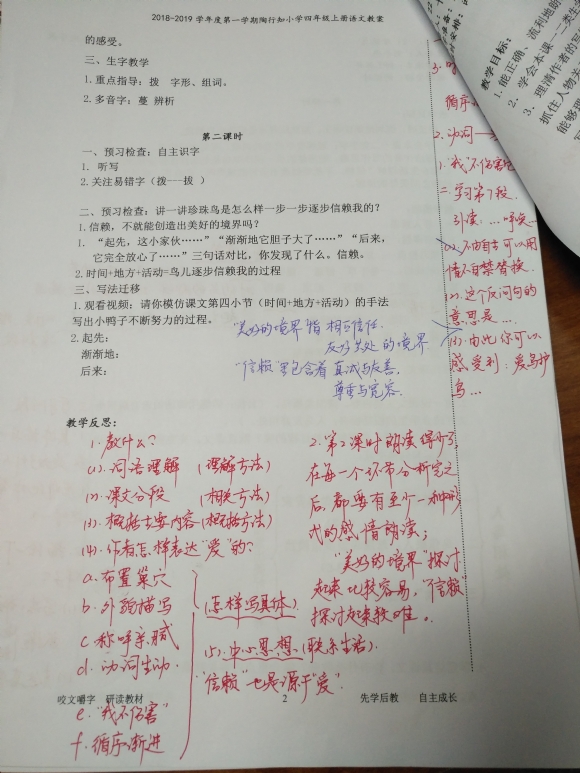 2018-2019 学年度第一学期陶行知小学四年级上册语文教案
的感受。
三、生字教学
1.重点指导：拨　字形、组词。
2.多音字：蔓 辨析
第二课时
一、预习检查：自主识字
1. 听写
2.关注易错字（拨---拔 ）
二、预习检查：讲一讲珍珠鸟是怎么样一步一步逐步信赖我的？
1.信赖，不就能创造出美好的境界吗？
1. “起先，这小家伙……”“渐渐地它胆子大了……”“后来，
它完全放心了……”三句话对比，你发现了什么。信赖。
2.时间+地方+活动=鸟儿逐步信赖我的过程
三、写法迁移
1.观看视频：请你模仿课文第四小节（时间+地方+活动）的手法
写出小鸭子不断努力的过程。
2.起先：
渐渐地：
后来：
“美好的境界”指 相互信任、
友好共处 的境界
“信赖”里包含着 真诚与友善，
尊重与宽容.
教学反思：
1. 教什么？
(1). 词语理解 (理解方法)
(2). 课文分段 (相关方法)
(3). 概括主要内容 (概括方法)
(4). 作者怎样表达“爱”的？
a. 布置巢穴
b. 外貌描写
c. 称呼亲腻
d. 动词生动.
e. “我不伤害”
f. 循序渐进
(怎样写具体)
2. 第2课时朗读得少了,
在每一个环节分析完之
后,都要有至少一种形
式的感情朗读；
“美好的境界”探讨
起来比较容易，“信赖”
探讨起来较难。
(5). 中心思想 (联系生活).
“信赖”也是源于“爱”.
循序
2. 动词→
1. “我不伤害它
二. 学习第7段.
引读：… 呼唤…
(1). 不由自主可以用
情不自禁替换.
(2). 这个反问句的
意思是…
(3). 由此你可以
感受到：爱鸟护
鸟…
教学目标：
1. 能正确、流利地朗
2. 学会本课一二类生
3. 理清作者的写
抓住人物
能够
咬文嚼字　研读教材
2
先学后教　　自主成长